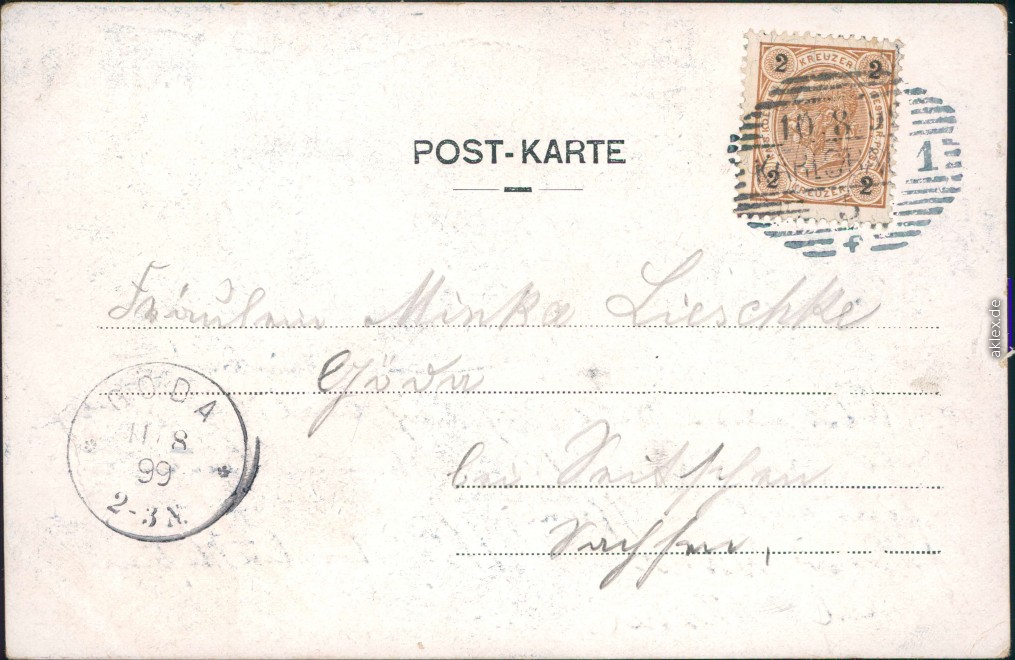 2 KREUZER 2
10 8
1
2 KREUZER 2
f
POST-KARTE
Fräulein Minka Lieschke
Göda
bei Seitschen
Sachsen,
GÖDA
11 8
99
2-3 N.
aklex.de